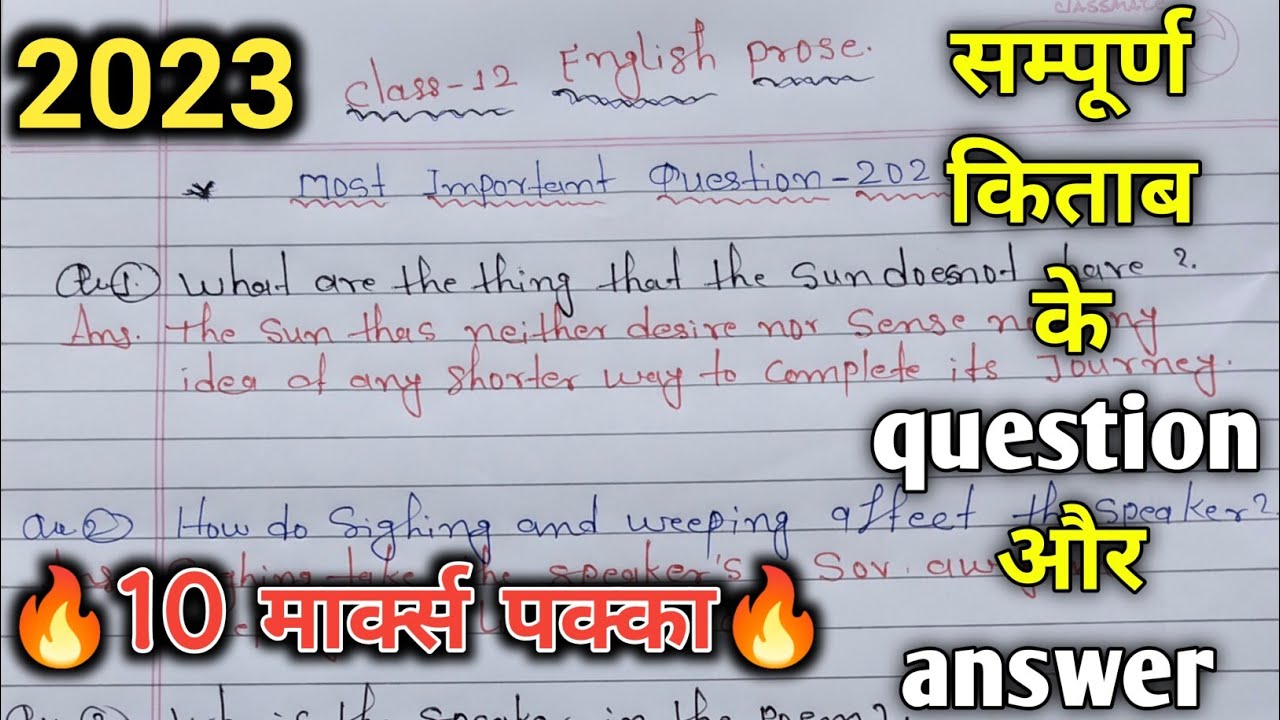 2023
CLASSMATE
Class-12 English prose.
Most Important Question-202
Qu.1. What are the thing that the Sun doesnot have ?.
Ans. The Sun thas neither desire nor Sense
idea of any shorter way to Complete its Journey.
Qu.2 How do Sighing and weeping affect the speaker?
the speaker's Sov.
the speaker in the Poem?.
सम्पूर्ण
किताब
के
question
और
answer
🔥10 मार्क्स पक्का🔥